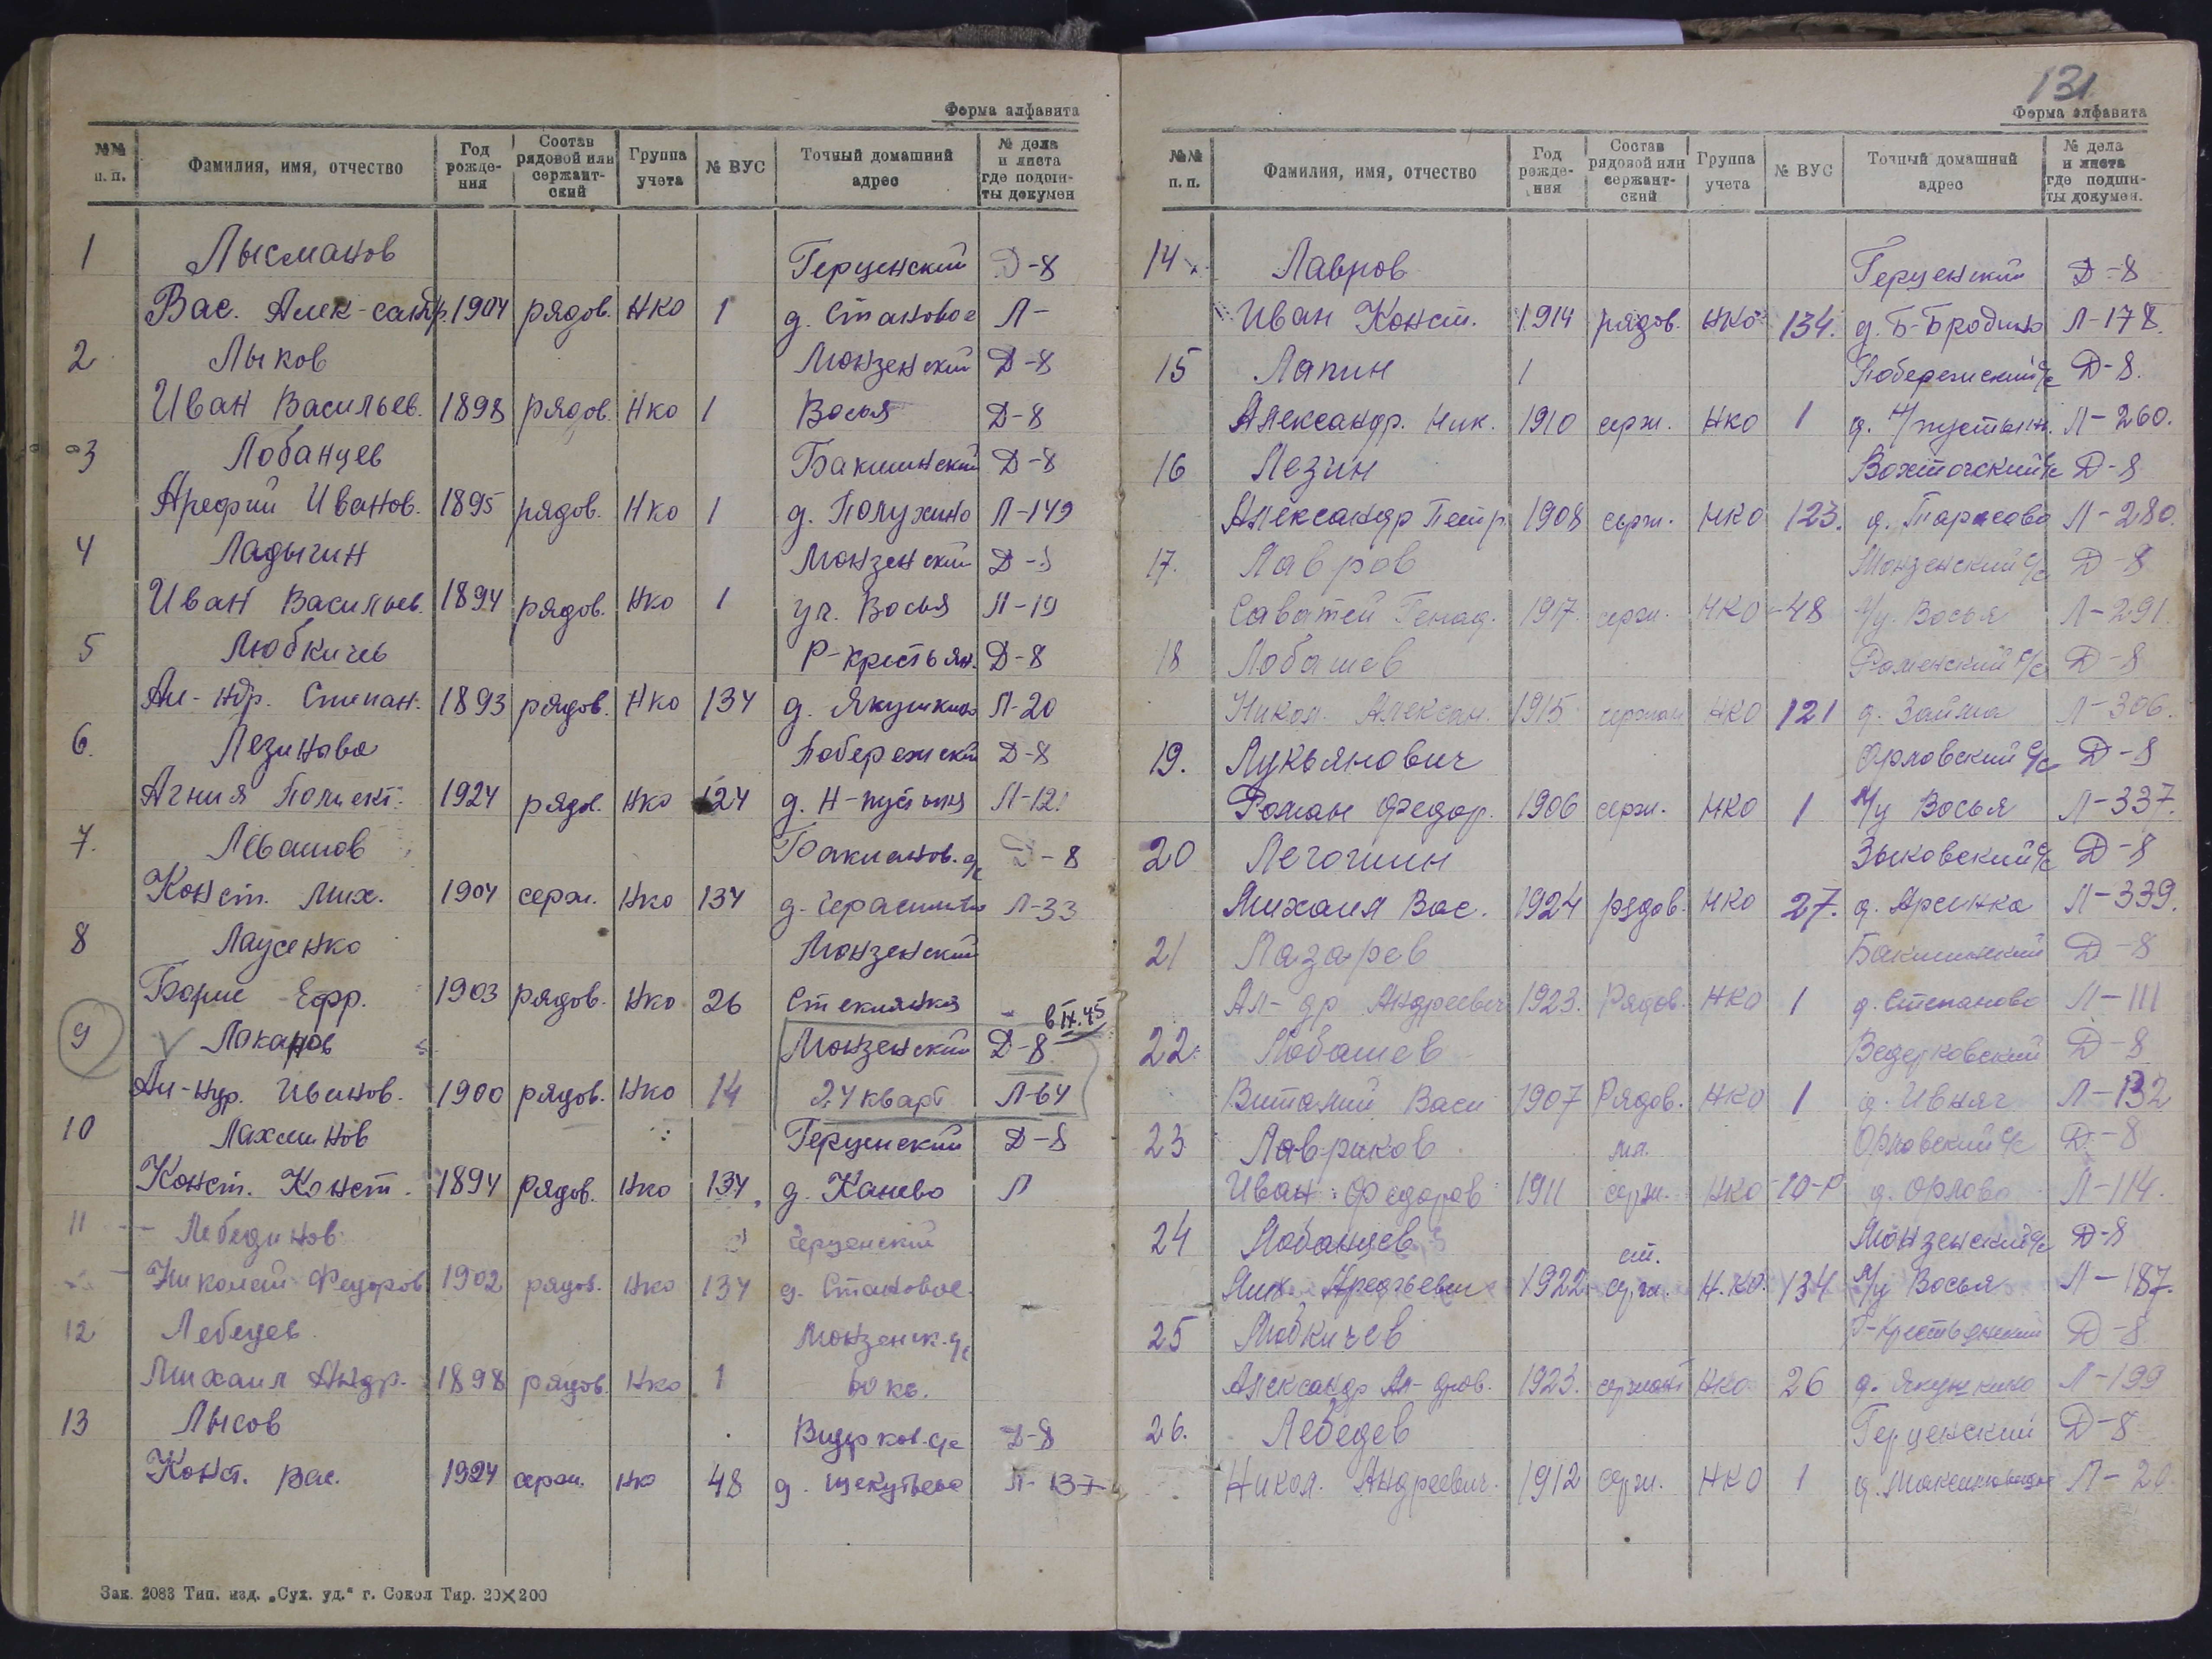 Форма алфавита
№№ п. п. Фамилия, имя, отчество Год рожде-ния Состав рядовой или сержант-ский Группа учета № ВУС Точный домашний адрес № дела и листа где подши-ты докумен
1 Лысманов Герценский Д-8
Вас. Алек-сандр. 1904 рядов. НКО 1 д. Становое Л-
2 Лыков Монзенский Д-8
Иван Васильев. 1898 рядов. НКО 1 Восья Д-8
3 Лобанцев Бакшинский Д-8
Арефий Иванов. 1895 рядов. НКО 1 д. Полухино Л-149
4 Ладыгин Монзенский Д-8
Иван Васильев. 1894 рядов. НКО 1 уч. Восья Л-19
5 Любкичев Р-крестьян. Д-8
Ал-ндр. Степан. 1893 рядов. НКО 134 д. Якушкино Л-20
6. Лезинова Побережский Д-8
Агния Полиект. 1924 рядов. НКО 124 д. Н-пустынь Л-121
7. Левашов Бакланов. с/с Д-8
Конст. Мих. 1904 серж. НКО 134 д. Герасимово Л-33
8 Лаусенко Монзенский
Борис Ефр. 1903 рядов. НКО 26 Стеклянка
6 IX.45
9 Лаканов Монзенский Д-8
Ал-ндр. Иванов. 1900 рядов. НКО 14 24 кварт Л-64
10 Лахминов Герценский Д-8
Конст. Конст. 1894 рядов. НКО 134 д. Канево Л
11 Лебединов Герценский
Николай Федоров 1902 рядов. НКО 134 д. Становое.
12 Лебедев Монзенск. с/с
Михаил Андр. 1898 рядов. НКО 1 60 кв.
13 Лысов Ведерков. с/с Д-8
Конст. Вас. 1924 серж. НКО 48 д. Щекутьево Л-137
Зак. 2083 Тип. изд. „Сух. уд." г. Сокол Тир. 20×200
131
Форма алфавита
№№ п. п. Фамилия, имя, отчество Год рожде-ния Состав рядовой или сержант-ский Группа учета № ВУС Точный домашний адрес № дела и листа где подши-ты докумен.
14 Лавров Герценский Д-8
Иван Конст. 1914 рядов. НКО 134. д. Б-Бродино Л-178.
15 Лапин Побережский с/с Д-8.
Александр. Ник. 1910 серж. НКО 1 д. Н/пустынь. Л-260.
16 Лезин Вохтогский с/с Д-8
Александр Петр 1908 серж. НКО 123. д. Тарасово Л-280.
17. Лавров Монзенский с/с Д-8
Саватей Генад. 1917. серж. НКО 48 Л/у. Восья Л-291
18 Лобашев Раменский с/с Д-8
Никол. Алексан. 1915 сержан НКО 121 д. Займа Л-306.
19. Лукьянович Орловский с/с Д-8
Роман Федор. 1906 серж. НКО 1 Л/у Восья Л-337.
20 Легошин Зыковский с/с Д-8
Михаил Вас. 1924 рядов. НКО 27. д. Арсинка Л-339.
21 Лазарев Бакшинский Д-8
Ал-др Андреевич 1923. Рядов. НКО 1 д. Степаново Л-111
22. Лобашев Ведерковский Д-8
Виталий Васи 1907 Рядов. НКО 1 д. Ивняг Л-132
23 Лавриков мл. Орловский с/с Д-8
Иван Федоров 1911 серж. НКО 10-Р д. Орлово Л-114.
24 Лобанцев ст. Монзенский с/с Д-8
Мих. Арефьевич 1922 серж. Н.КО. 134 Л/у Восья Л-187.
25 Любкичев Р-Крестьянский Д-8
Александр Ал-дров. 1923. сержант НКО 26 д. Якушкино Л-199
26. Лебедев Герценский Д-8
Никол. Андреевич. 1912 серж. НКО 1 Л-20.